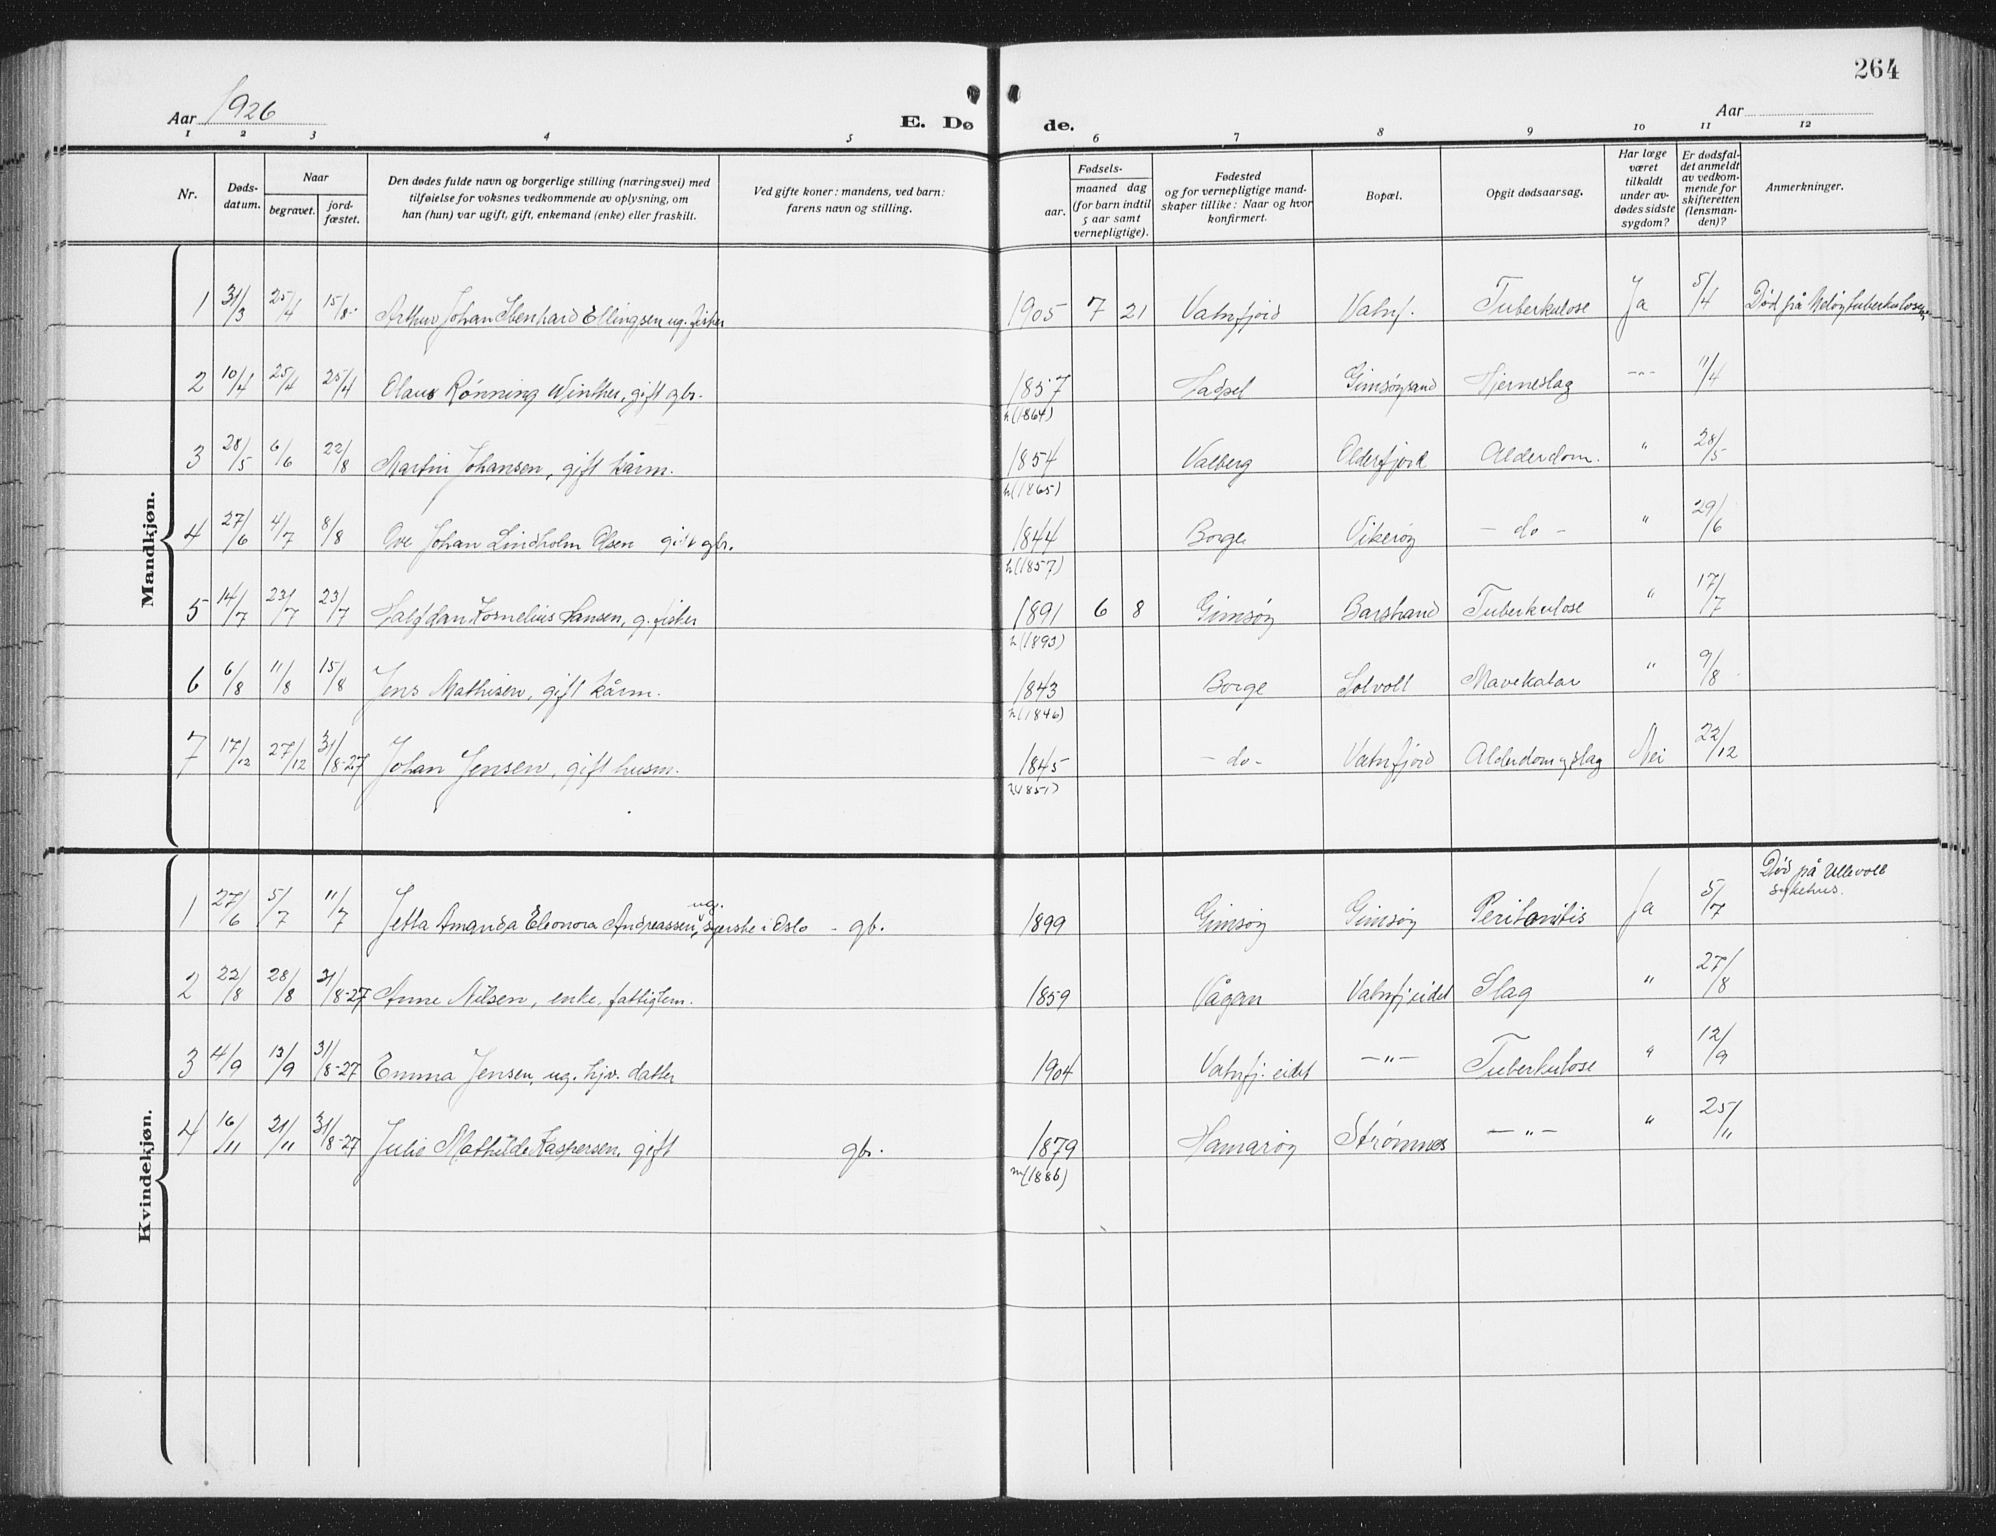 264
Aar 1926
E. Dø de.
Aar
1 2 3 4 5 6 7 8 9 10 11 12
Nr.
Døds-
datum.
Naar
begravet.
jord-
fæstet.
Den dødes fulde navn og borgerlige stilling (næringsvei) med
tilføielse for voksnes vedkommende av oplysning, om
han (hun) var ugift, gift, enkemand (enke) eller fraskilt.
Ved gifte koner: mandens, ved barn:
farens navn og stilling.
Fødsels-
aar.
maaned dag
(for barn indtil
5 aar samt
vernepligtige).
Fødested
og for vernepligtige mand-
skaper tillike: Naar og hvor
konfirmert.
Bopæl.
Opgit dødsaarsag.
Har læge
været
tilkaldt
under av-
dødes sidste
sygdom?
Er dødsfal-
det anmeldt
av vedkom-
mende for
skifteretten
(lensman-
den)?
Anmerkninger.
Mandkjøn.
1 31/3 25/4 15/8 Arthur Johan Ellingsen ug. fisker 1905 7 21 Vatnfjord Vatnf. Tuberkulose Ja 5/4 Død på
2 10/4 25/4 25/4 Olaus Rønning Winther, gift gbr. 1857 Hadsel Gimsøysand Hjerneslag -"- 11/4
(1864)
3 28/5 6/6 22/8 Martin Johansen, gift kårm. 1854 Valberg Olderfjord Alderdom. " 28/5
(1865)
4 27/6 4/7 8/8 Ove Johan Lindholm Olsen gift gbr. 1844 Borge Vikerøy - do - " 29/6
(1857)
5 14/7 23/7 23/7 Halfdan Kornelius Hansen, g. fisker 1891 6 8 Gimsøy Barstrand Tuberkulose " 17/7
(1893)
6 6/8 11/8 15/8 Jens Mathisen, gift kårm. 1843 Borge Solvoll Mavekatar " 9/8
(1846)
7 17/12 27/12 31/8-27 Johan Jensen, gift husm. 1845 - do - Vatnfjord Alderdomsslag Nei 22/12
(1851)
Kvindekjøn.
Død på Ullevoll
sykehus.
ug.
1 27/6 5/7 11/7 Jetta Amanda Eleonora Andreassen, syerske i Oslo - gb. 1899 Gimsøy Gimsøy Peritonitis Ja 5/7
2 22/8 28/8 31/8-27 Anne Nilsen, enke, fattiglem. 1859 Vågan Vatnfjeidet Slag " 27/8
3 4/9 13/9 31/8-27 Emma Jensen, ug. hjv. datter 1904 Vatnfj. eidet -"- Tuberkulose " 12/9
4 16/11 21/11 31/8-27 Julie Mathilde Kaspersen, gift gbr. 1879 Hamarøy Strømnes -"- " 25/11
m(1886)